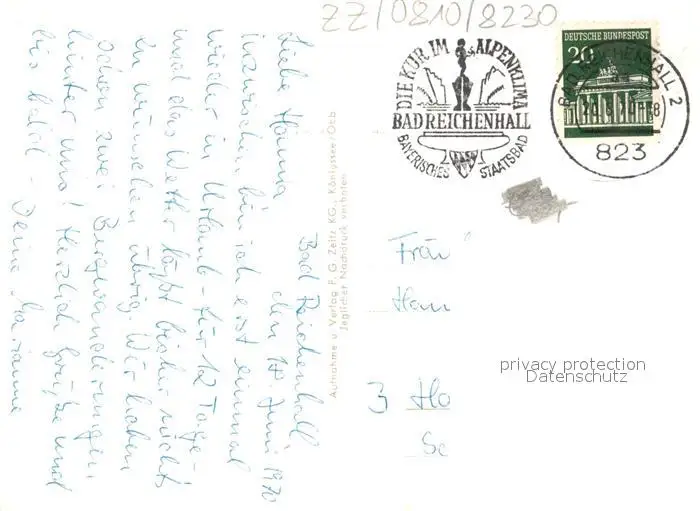 ZZ/0810/8230
DIE KUR IM ALPENKLIMA
BAD REICHENHALL
BAYERISCHES STAATSBAD
DEUTSCHE BUNDESPOST
20
BAD REICHENHALL 2
823
Bad Reichenhall
den Juni 1970
Liebe Hanna,
inzwischen bin ich erst einmal
wieder in Urlaub - für 12 Tage -
und das Wetter läßt bisher nichts
zu wünschen übrig. Wir haben
schon zwei Bergwanderungen
hinter uns! Herzlich grüße und
bis bald - Deine Marianne
Aufnahme u. Verlag F. G. Zeitz KG., Königssee/Obb.
Jeglicher Nachdruck verboten
Frau
Han
3 Ho
Sc
privacy protection
Datenschutz